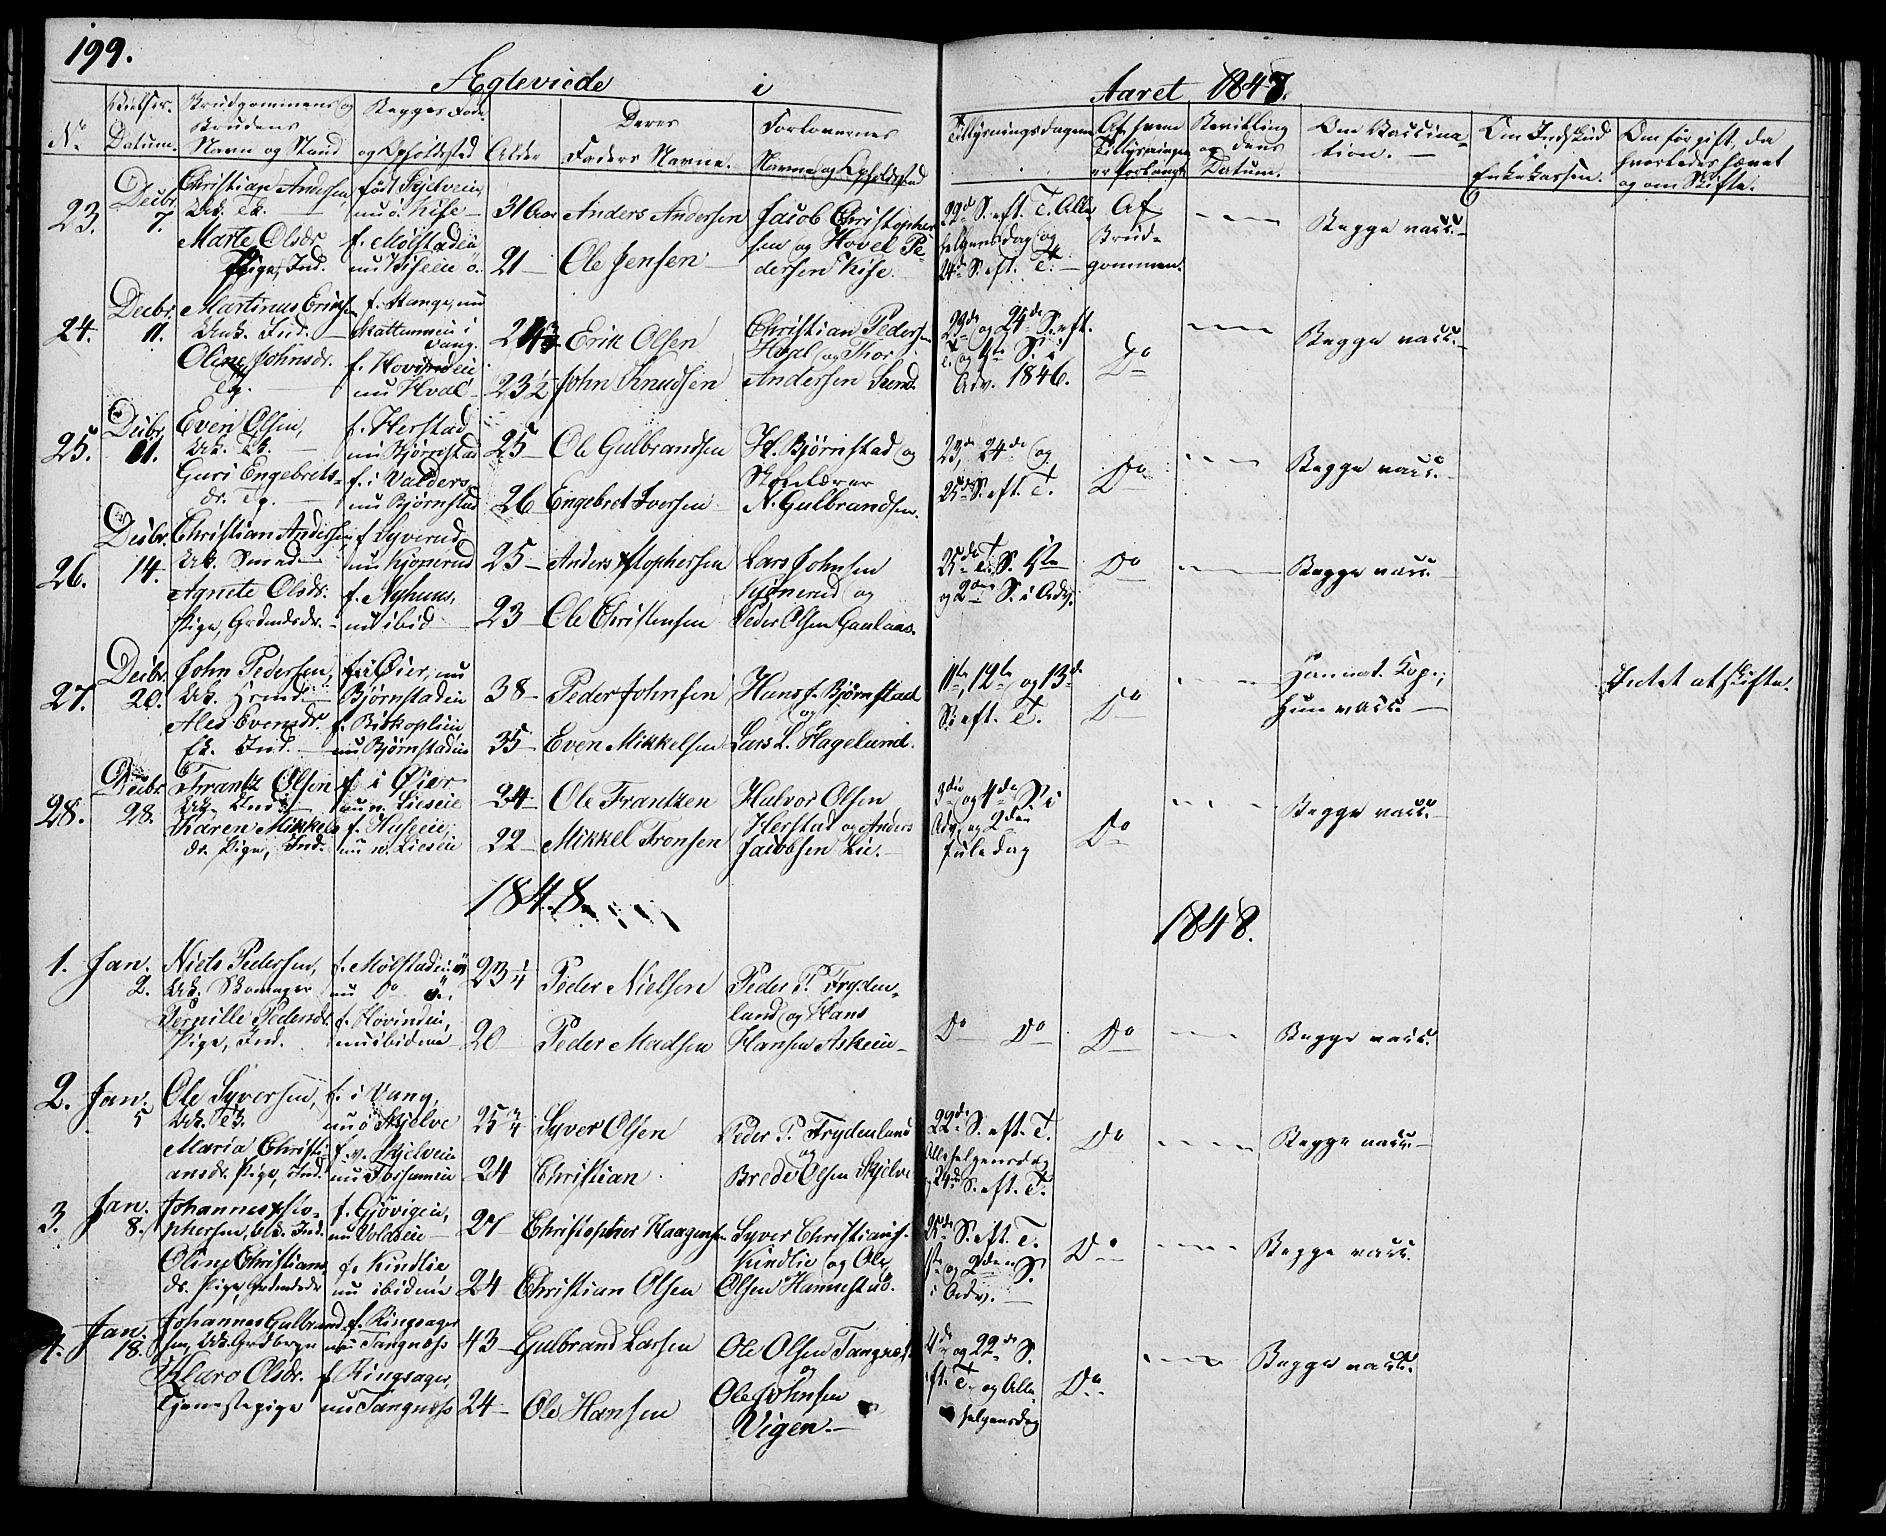 199.
Ægteviede i
Aaret 1847.
No
Vielses-Datum.
Brudgommens og
Brudens
Navn og Stand
Begges Føde
og Opholdssted
Alder
Deres
Faders Navne.
Forlovernes
Navne og Opholdssted
Tillysningsdagene
Af hvem
Tillysningen
er forlangt
Bevilling
og dens
Datum.
Om Vaccina-
tion.
Om Indskud
Enkekassen.
Om før gift, da
hvorledes hævet
og om Skifte.
23.
Decbr.
7.
Christian Andersen
Uk.
Marte Olsdr
Pige, Ind.
født Skjelveie
nu ø. Kise
f. Mølstadeie
nu Kiseeie ø.
31 Aar
21
Anders Andersen
Ole Jensen
Jacob Christopher
sen og Hovel Pe-
dersen Kise.
22de S. eft. T. Alle
helgensdag og
24de S. eft. T.
Af
Brud-
gommen.
Begge vacc.
24.
Decbr.
11.
Martinus Eriks.
Uk. Ind.
Oline Johnsdr.
f. Stange, nu
i
Vang.
f. Hovindeie
nu Hval
23 1/2
Erik Olsen
John Knudsen
Christian Peders
Hval og Thor
Andersen Lund.
23de og 24de S. eft.
T. og 1ste S. i
Adv. 1846.
Do
Begge vacc.
25.
Decbr.
11.
Even Olsen,
Uk.
Guri Engebrets-
dr.
f. Herstad
nu Bjørnstad
f. i Valders
nu Bjørnstad
25
26
Ole Gulbrandsen
Engebret Iversen
H. Bjørnstad og
Skolelærer
N. Gulbrandsen.
23, 24de og
25de S. eft. T.
Do
Begge vacc.
26.
Decbr.
14.
Christian Anders
Uk. Smed
Agnete Olsdr.
Pige, Grdmdsdr.
f. Syverud
nu Kjonerud
f. Nyhuus,
nu ibid
25
23
Anders Xstophersen
Ole Christensen
Lars Johnsen
Kjonerud og
Peder Olsen Gaulaas.
25de S. 1ste
og 2den S. i Adv.
Do
Begge vacc.
27.
Decbr.
20.
John Pedersen,
Ales Evensdr.
Ind.
f. i Øier, nu
Bjørnstadeie
f. Birkoplien
nu Bjørnstadeie
38
35
Peder Johnsen
Even Mikkelsen
Hans J. Bjørnstad
og
Lars L. Hagelund.
11te, 12te, og 13de
S. eft. T.
Do
Han nat. Kop.,
hun vacc.
Intet at skifte.
28.
Decbr.
28.
Frantz Olsen
Uk. Ind.
Karen Mikkels
dr. Pige, Ind.
f. i Øier
nu n. Lieseie
f. Huseeie,
nu n. Lieseie
34
22
Ole Frantzen
Mikkel Fronsen
Halvor Olsen
Herstad og Anders
Jacobsen Lie.
3die og 4de S. i
Adv. og 2den
Juledag
Do
Begge vacc.
1848.
1848.
1.
Jan.
2.
Niels Pedersen,
Uk. Skomager
Pernille Pedersdr.
Pige, Ind.
f. Mølstadeie
nu Do
f. Hovindeie,
nu ibidem
23 1/4
20
Peder Nielsen
Peder Madsen
Peder P. Fryden-
lund og Hans
Hansen Askeie
Do Do
Do
Begge vacc.
2.
Jan.
5
Ole Syversen,
Uk.
Maria Christi-
ansdr. Pige, Ind.
f. i Vang,
nu ø Skjelve
f. v. Skjelveie
25 3/4
24
Syver Olsen
Christian
Peder P. Frydenlund
og
Brede Olsen Skjelve
22de S. eft. T.
Allehelgensdag
24de S. eft. T.
Do
Begge vacc.
3.
Jan.
8.
Johannes Xsto-
phersen, Uk. Ind.
Oline Christians
dr. Pige, Grdmdsdr
f. Gjøvigeie,
nu Voldeie
f. Kindlie
nu ibidem
27
24
Christopher Haagensen
Christian Olsen
Syver Christians.
Kindlie og Ole
Olsen Hannestad.
25de S. eft. T.
og 2den S.
i Adv.
Do
Begge vacc.
4.
Jan.
18.
Johannes Gulbrand
sen, Uk.
Klara Olsdr.
Tjenestepige
f. Ringsager
nu Tangnæs
f. Ringsager,
nu Tangnæs
43
24
Gulbrand Larsen
Ole Hansen
Ole Olsen Tangnæs
og
Ole Johnsen
Vigen.
og 22de S.
eft. T. og Alle
helgensdag
Do
Begge vacc.